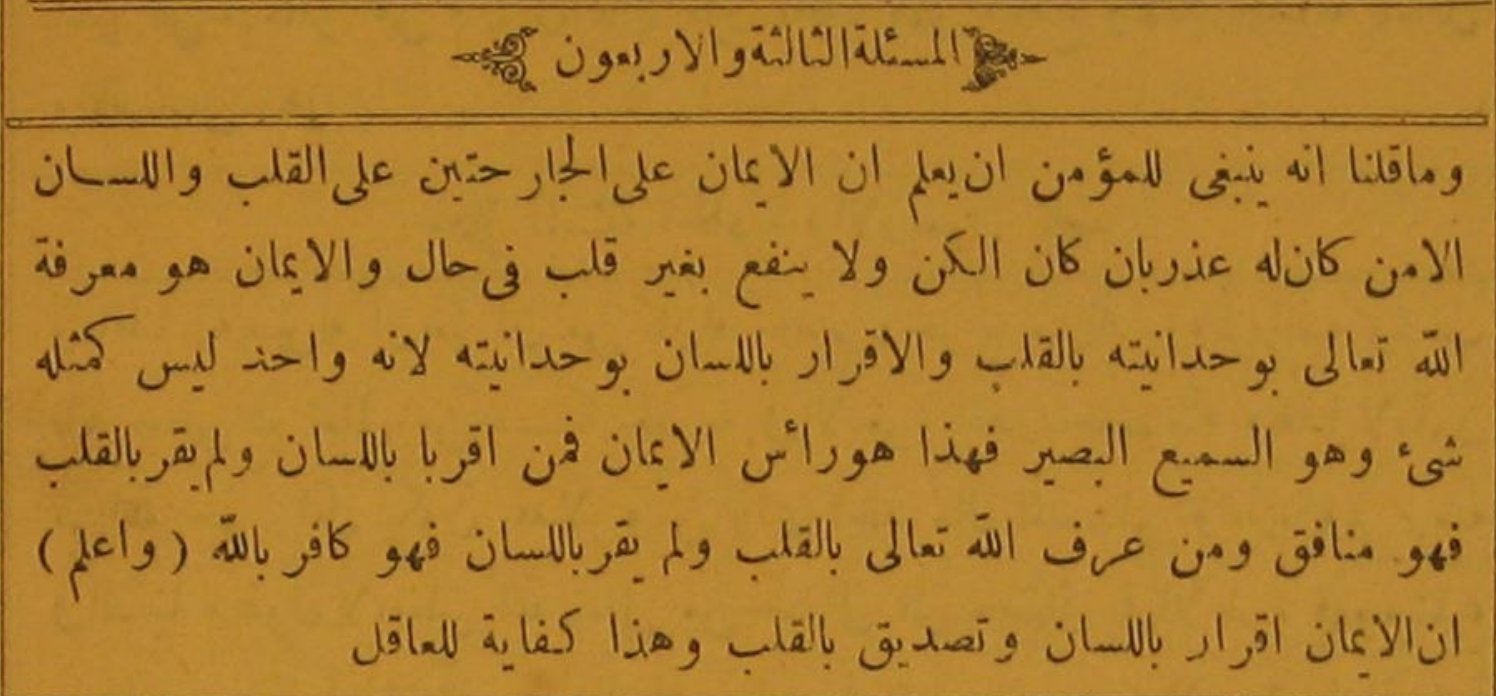 المسئلة الثالثة والاربعون
وماقلنا انه ينبغى للمؤمن ان يعلم ان الايمان على الجارحتين على القلب واللسان
الامن كان له عذربان كان الكن ولا ينفع بغير قلب فى حال والايمان هو معرفة
الله تعالى بوحدانيته بالقلب والاقرار باللسان بوحدانيته لانه واحد ليس كمثله
شىء وهو السميع البصير فهذا هورأس الايمان فمن اقربا باللسان ولم يقر بالقلب
فهو منافق ومن عرف الله تعالى بالقلب ولم يقر باللسان فهو كافر بالله (واعلم)
ان الايمان اقرار باللسان وتصديق بالقلب وهذا كفاية للعاقل